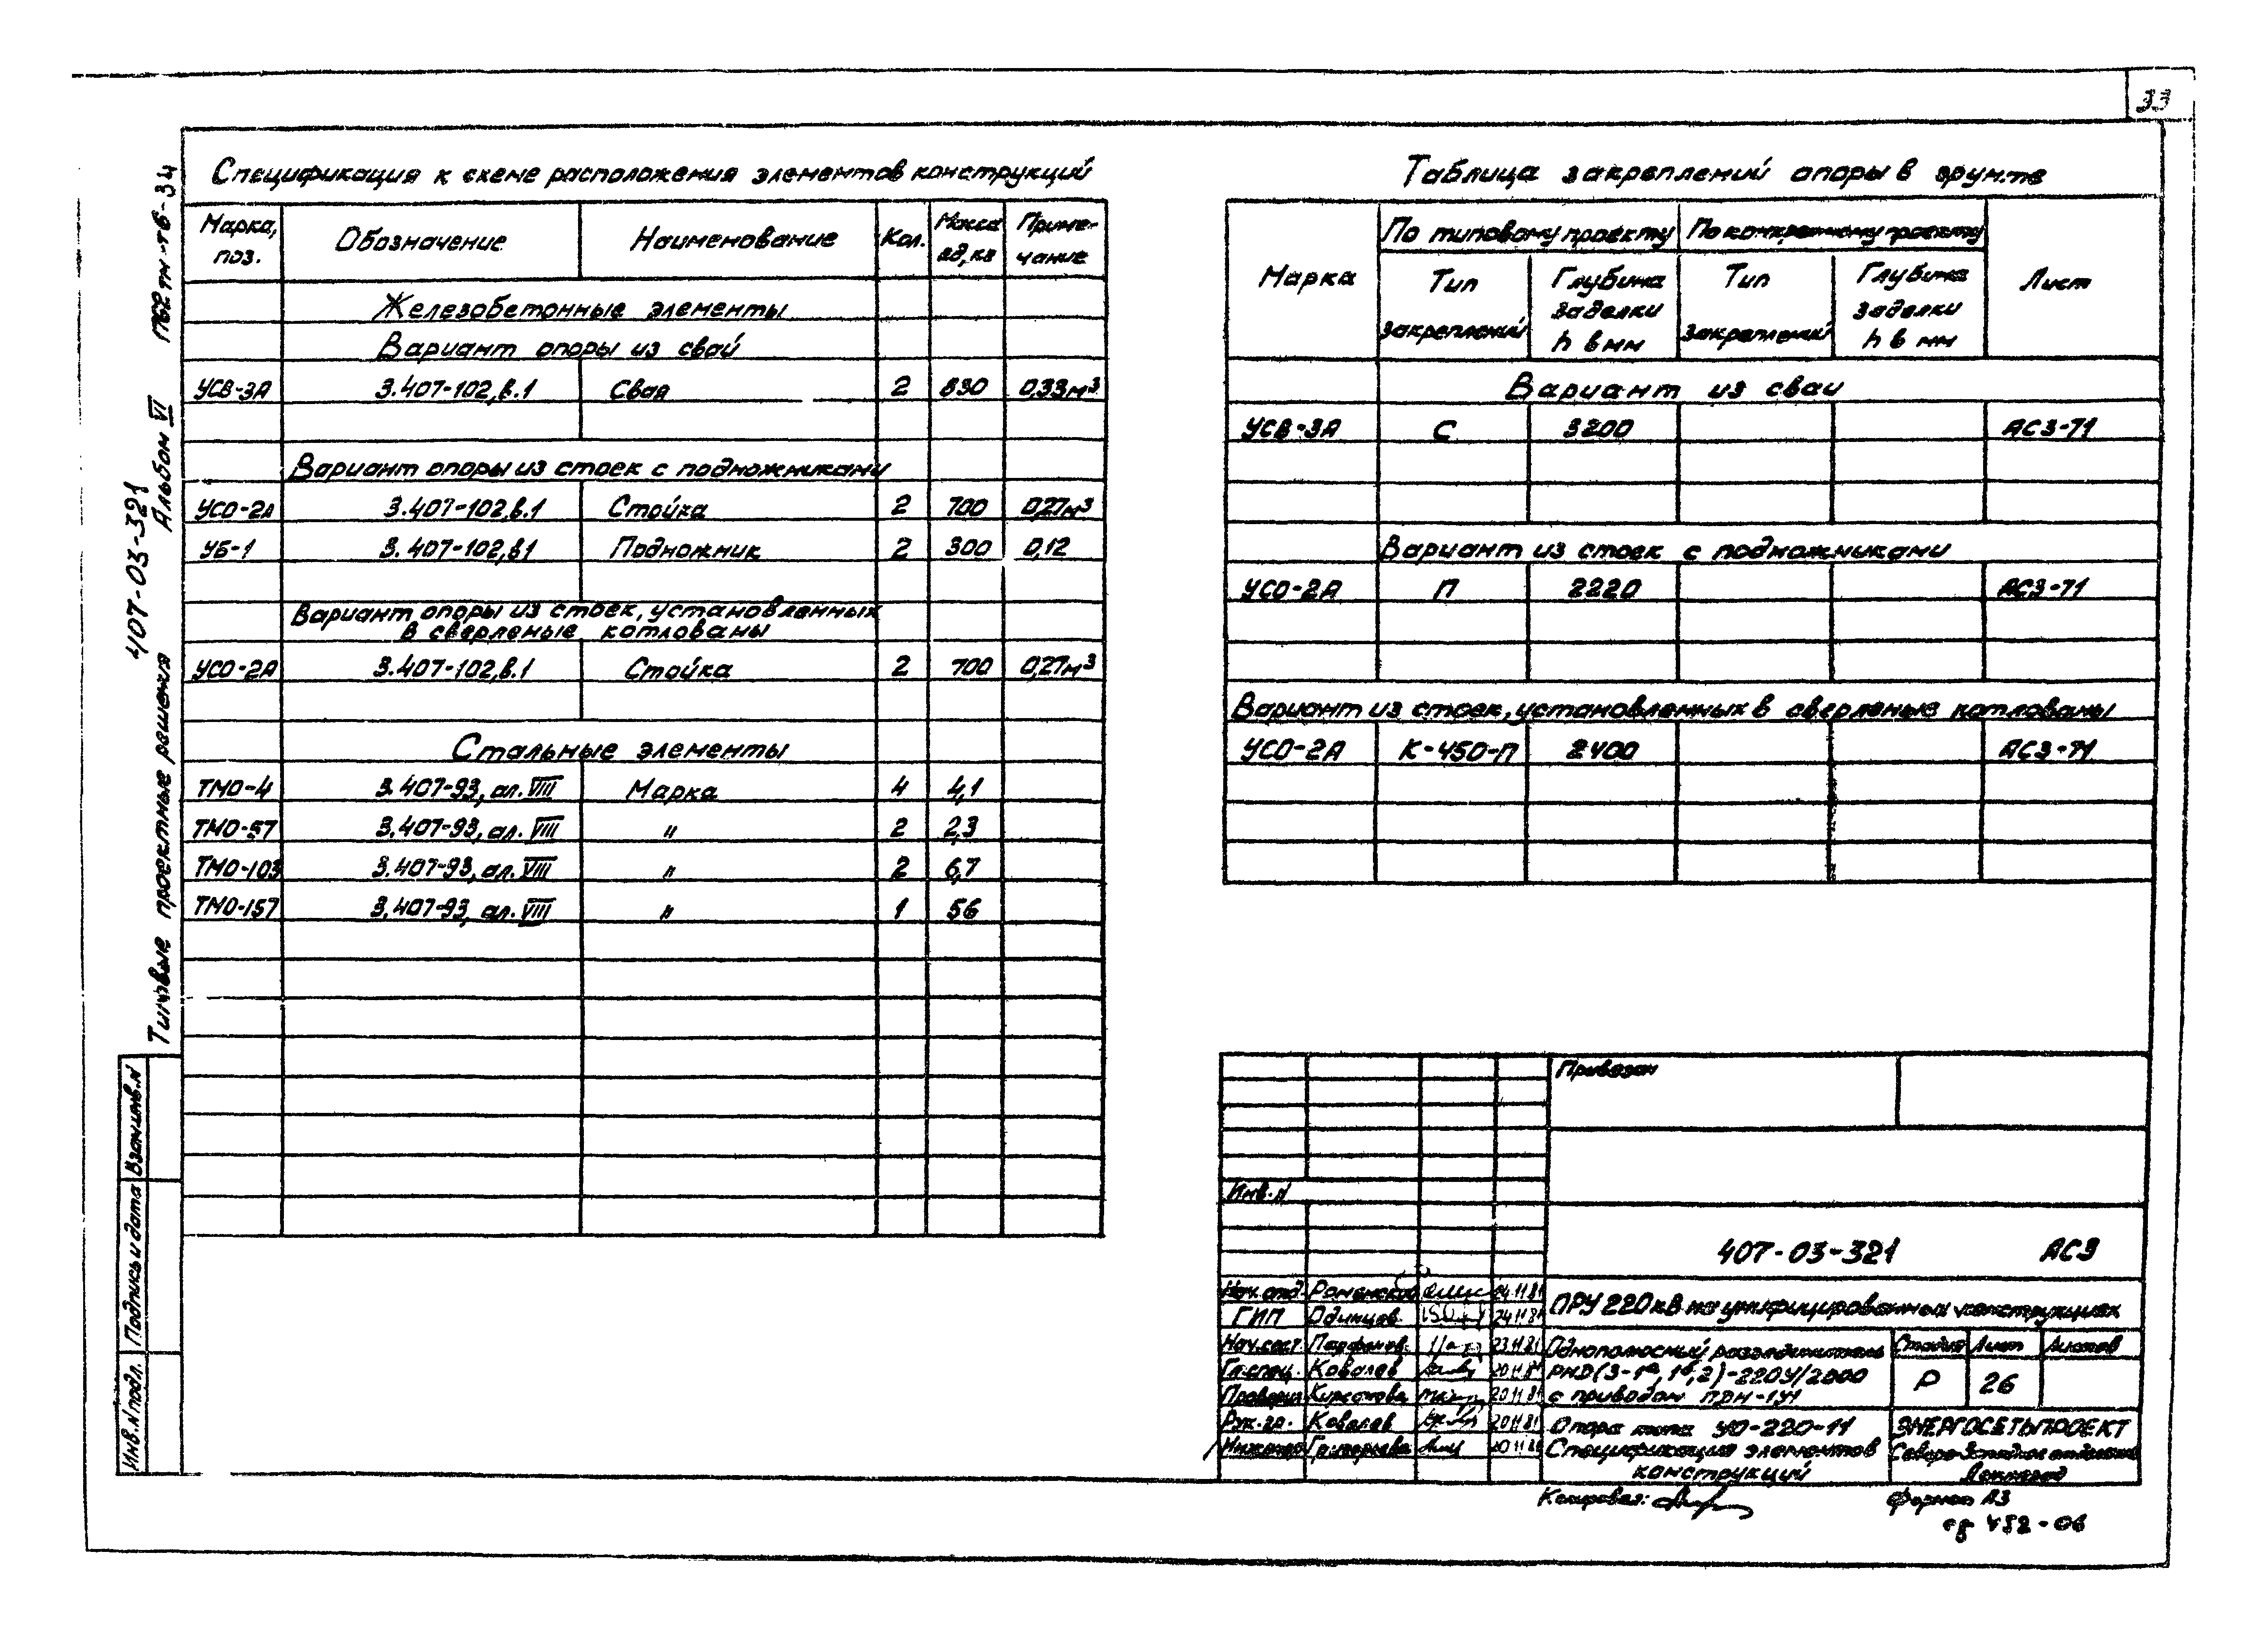 33
Спецификация к схеме расположения элементов конструкций
Марка, поз. Обозначение Наименование Кол. Масса ед, кг Приме-чание
Железобетонные элементы
Вариант опоры из свай
УСВ-3А 3.407-102, в.1 Свая 2 830 0,33м³
Вариант опоры из стоек с подножниками
УСО-2А 3.407-102, в.1 Стойка 2 700 0,27м³
УБ-1 3.407-102, в1 Подножник 2 300 0,12
Вариант опоры из стоек, установленных
в сверленые котлованы
УСО-2А 3.407-102, в.1 Стойка 2 700 0,27м³
Стальные элементы
ТМО-4 3.407-93, ал. VIII Марка 4 4,1
ТМО-57 3.407-93, ал. VIII " 2 2,3
ТМО-103 3.407-93, ал. VIII " 2 6,7
ТМО-157 3.407-93, ал. VIII " 1 56
Таблица закреплений опоры в грунте
Марка По типовому проекту По конкретному проекту Лист
Тип закреплений Глубина заделки h в мм Тип закреплений Глубина заделки h в мм
Вариант из сваи
УСВ-3А С 3200 АС3-71
Вариант из стоек с подножниками
УСО-2А П 2220 АС3-71
Вариант из стоек, установленных в сверленые котлованы
УСО-2А К-450-П 2400 АС3-71
Типовые проектные решения 407-03-321 Альбом VI
Взам.инв.N
Подпись и дата
Инв.N подл.
Привязан
Инв.N
407-03-321 АС3
Нач.отд. Роменский 24.11.81
ГИП Одинцов 24.11.81
ПРУ 220кВ на унифицированных конструкциях
Нач.сект. Парфенов 23.11.81
Гл.спец. Ковалев 20.11.81
Провери Кирсанова 20.11.81
Рук.гр. Ковалев 20.11.81
Инженер Григорьева 20.11.81
Однополюсный разъединитель
РНД(3-1а, 1б, 2)-220У/2000
с приводом ПРН-1У1
Стадия Лист Листов
Р 26
Опора типа УО-220-11
Спецификация элементов
конструкций
ЭНЕРГОСЕТЬПРОЕКТ
Северо-Западное отделение
Ленинград
Копировал:
Формат А3